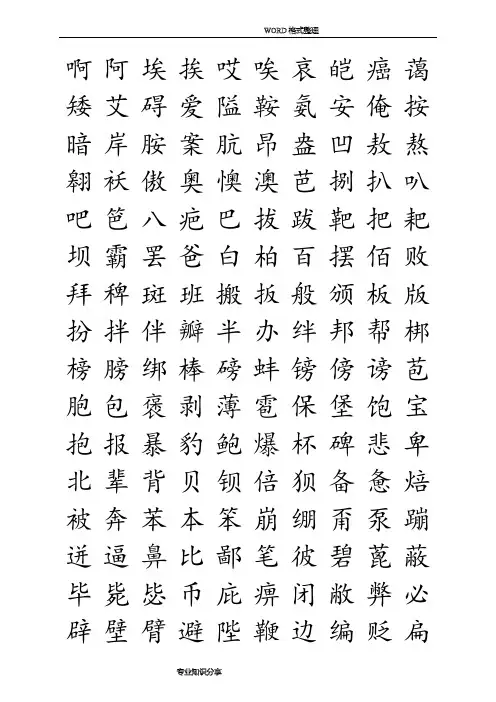 WORD格式整理
啊阿埃挨哎唉哀皑癌蔼
矮艾碍爱隘鞍氨安俺按
暗岸胺案肮昂盎凹敖熬
翱袄傲奥懊澳芭捌扒叭
吧笆八疤巴拔跋靶把耙
坝霸罢爸白柏百摆佰败
拜稗斑班搬扳般颁板版
扮拌伴瓣半办绊邦帮梆
榜膀绑棒磅蚌镑傍谤苞
胞包褒剥薄雹保堡饱宝
抱报暴豹鲍爆杯碑悲卑
北辈背贝钡倍狈备惫焙
被奔苯本笨崩绷甭泵蹦
迸逼鼻比鄙笔彼碧蓖蔽
毕毙毖币庇痹闭敝弊必
辟壁臂避陛鞭边编贬扁
专业知识分享